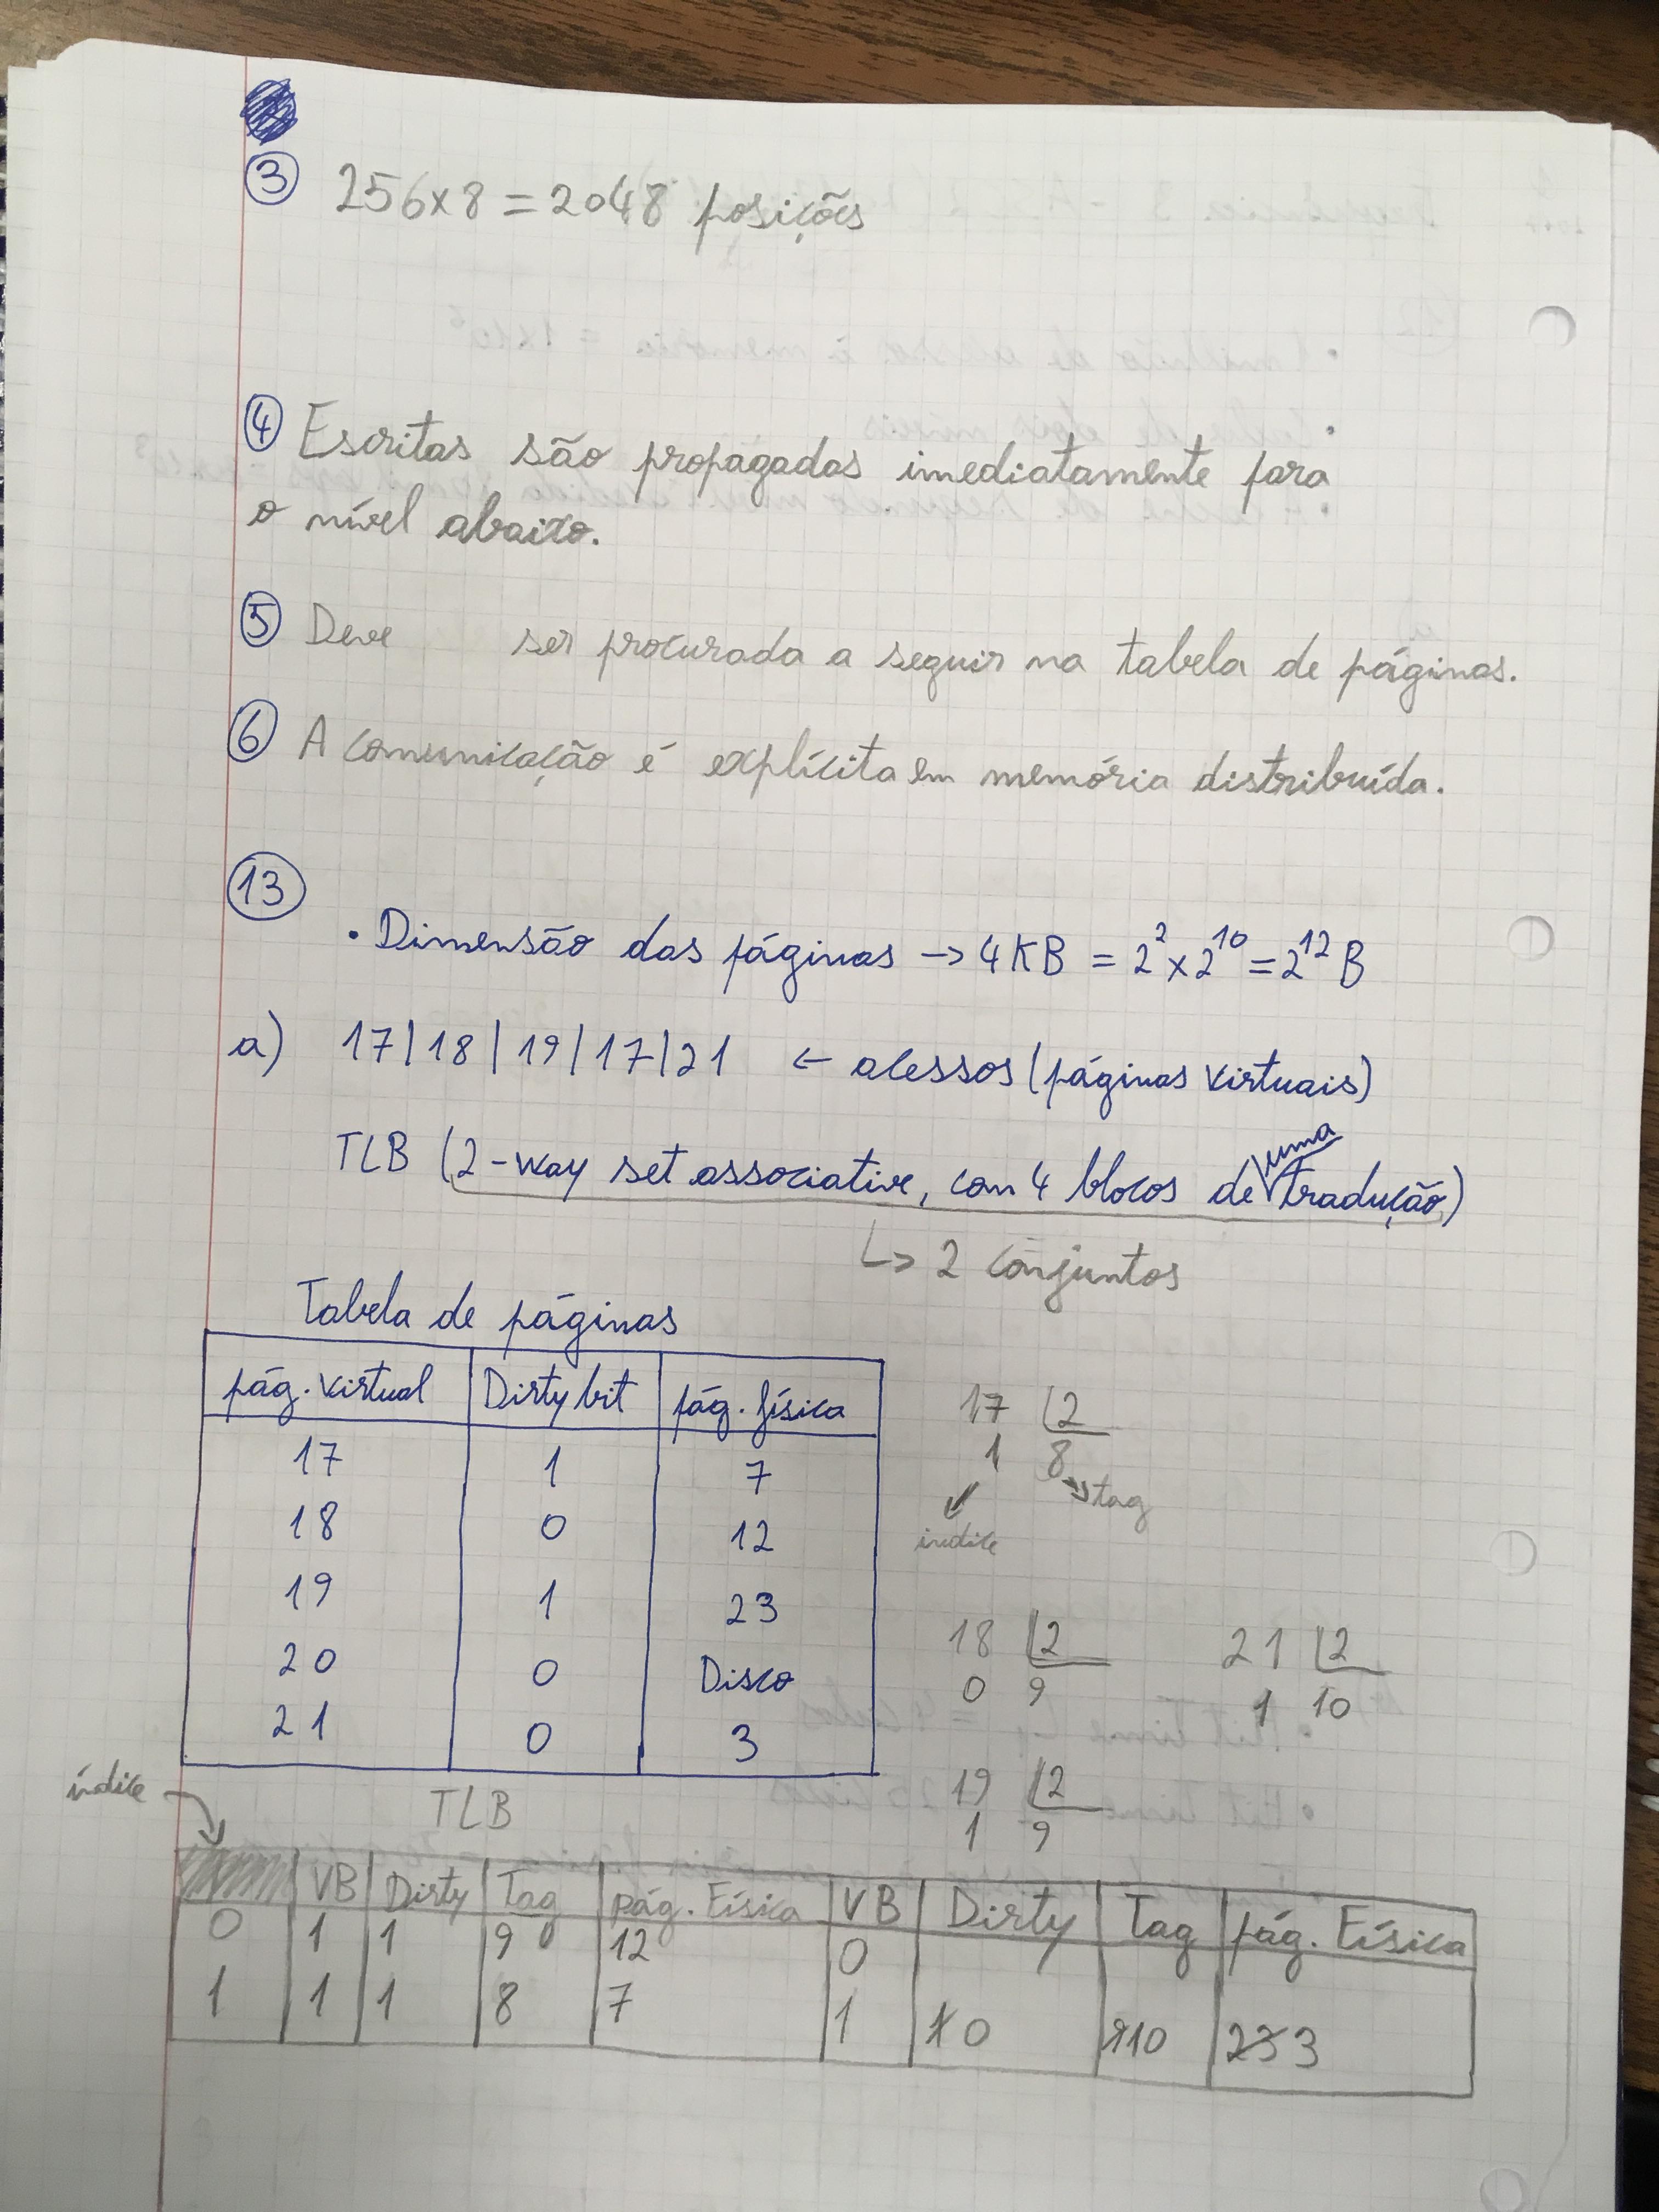 3 256x8 = 2048 posições
4 Escritas são propagadas imediatamente para
o nível abaixo.
5 Deve ser procurada a seguir na tabela de páginas.
6 A comunicação é explícita em memória distribuída.
13
• Dimensão das páginas → 4KB = 2² x 2¹⁰ = 2¹² B
a) 17 | 18 | 19 | 17 | 21 ← acessos (páginas virtuais)
TLB (2-way set associative, com 4 blocos de uma tradução)
↳ 2 conjuntos
Tabela de páginas
pág. virtual | Dirty bit | pág. física
17 | 1 | 7
18 | 0 | 12
19 | 1 | 23
20 | 0 | Disco
21 | 0 | 3
17 | 2
1 8
índice tag
18 | 2
0 9
21 | 2
1 10
19 | 2
1 9
índice
TLB
VB | Dirty | Tag | pág. Física | VB | Dirty | Tag | pág. Física
0 | 1 | 1 | 9 0 | 12 | 0
1 | 1 | 1 | 8 | 7 | 1 | 1 0 | 9 10 | 23 3